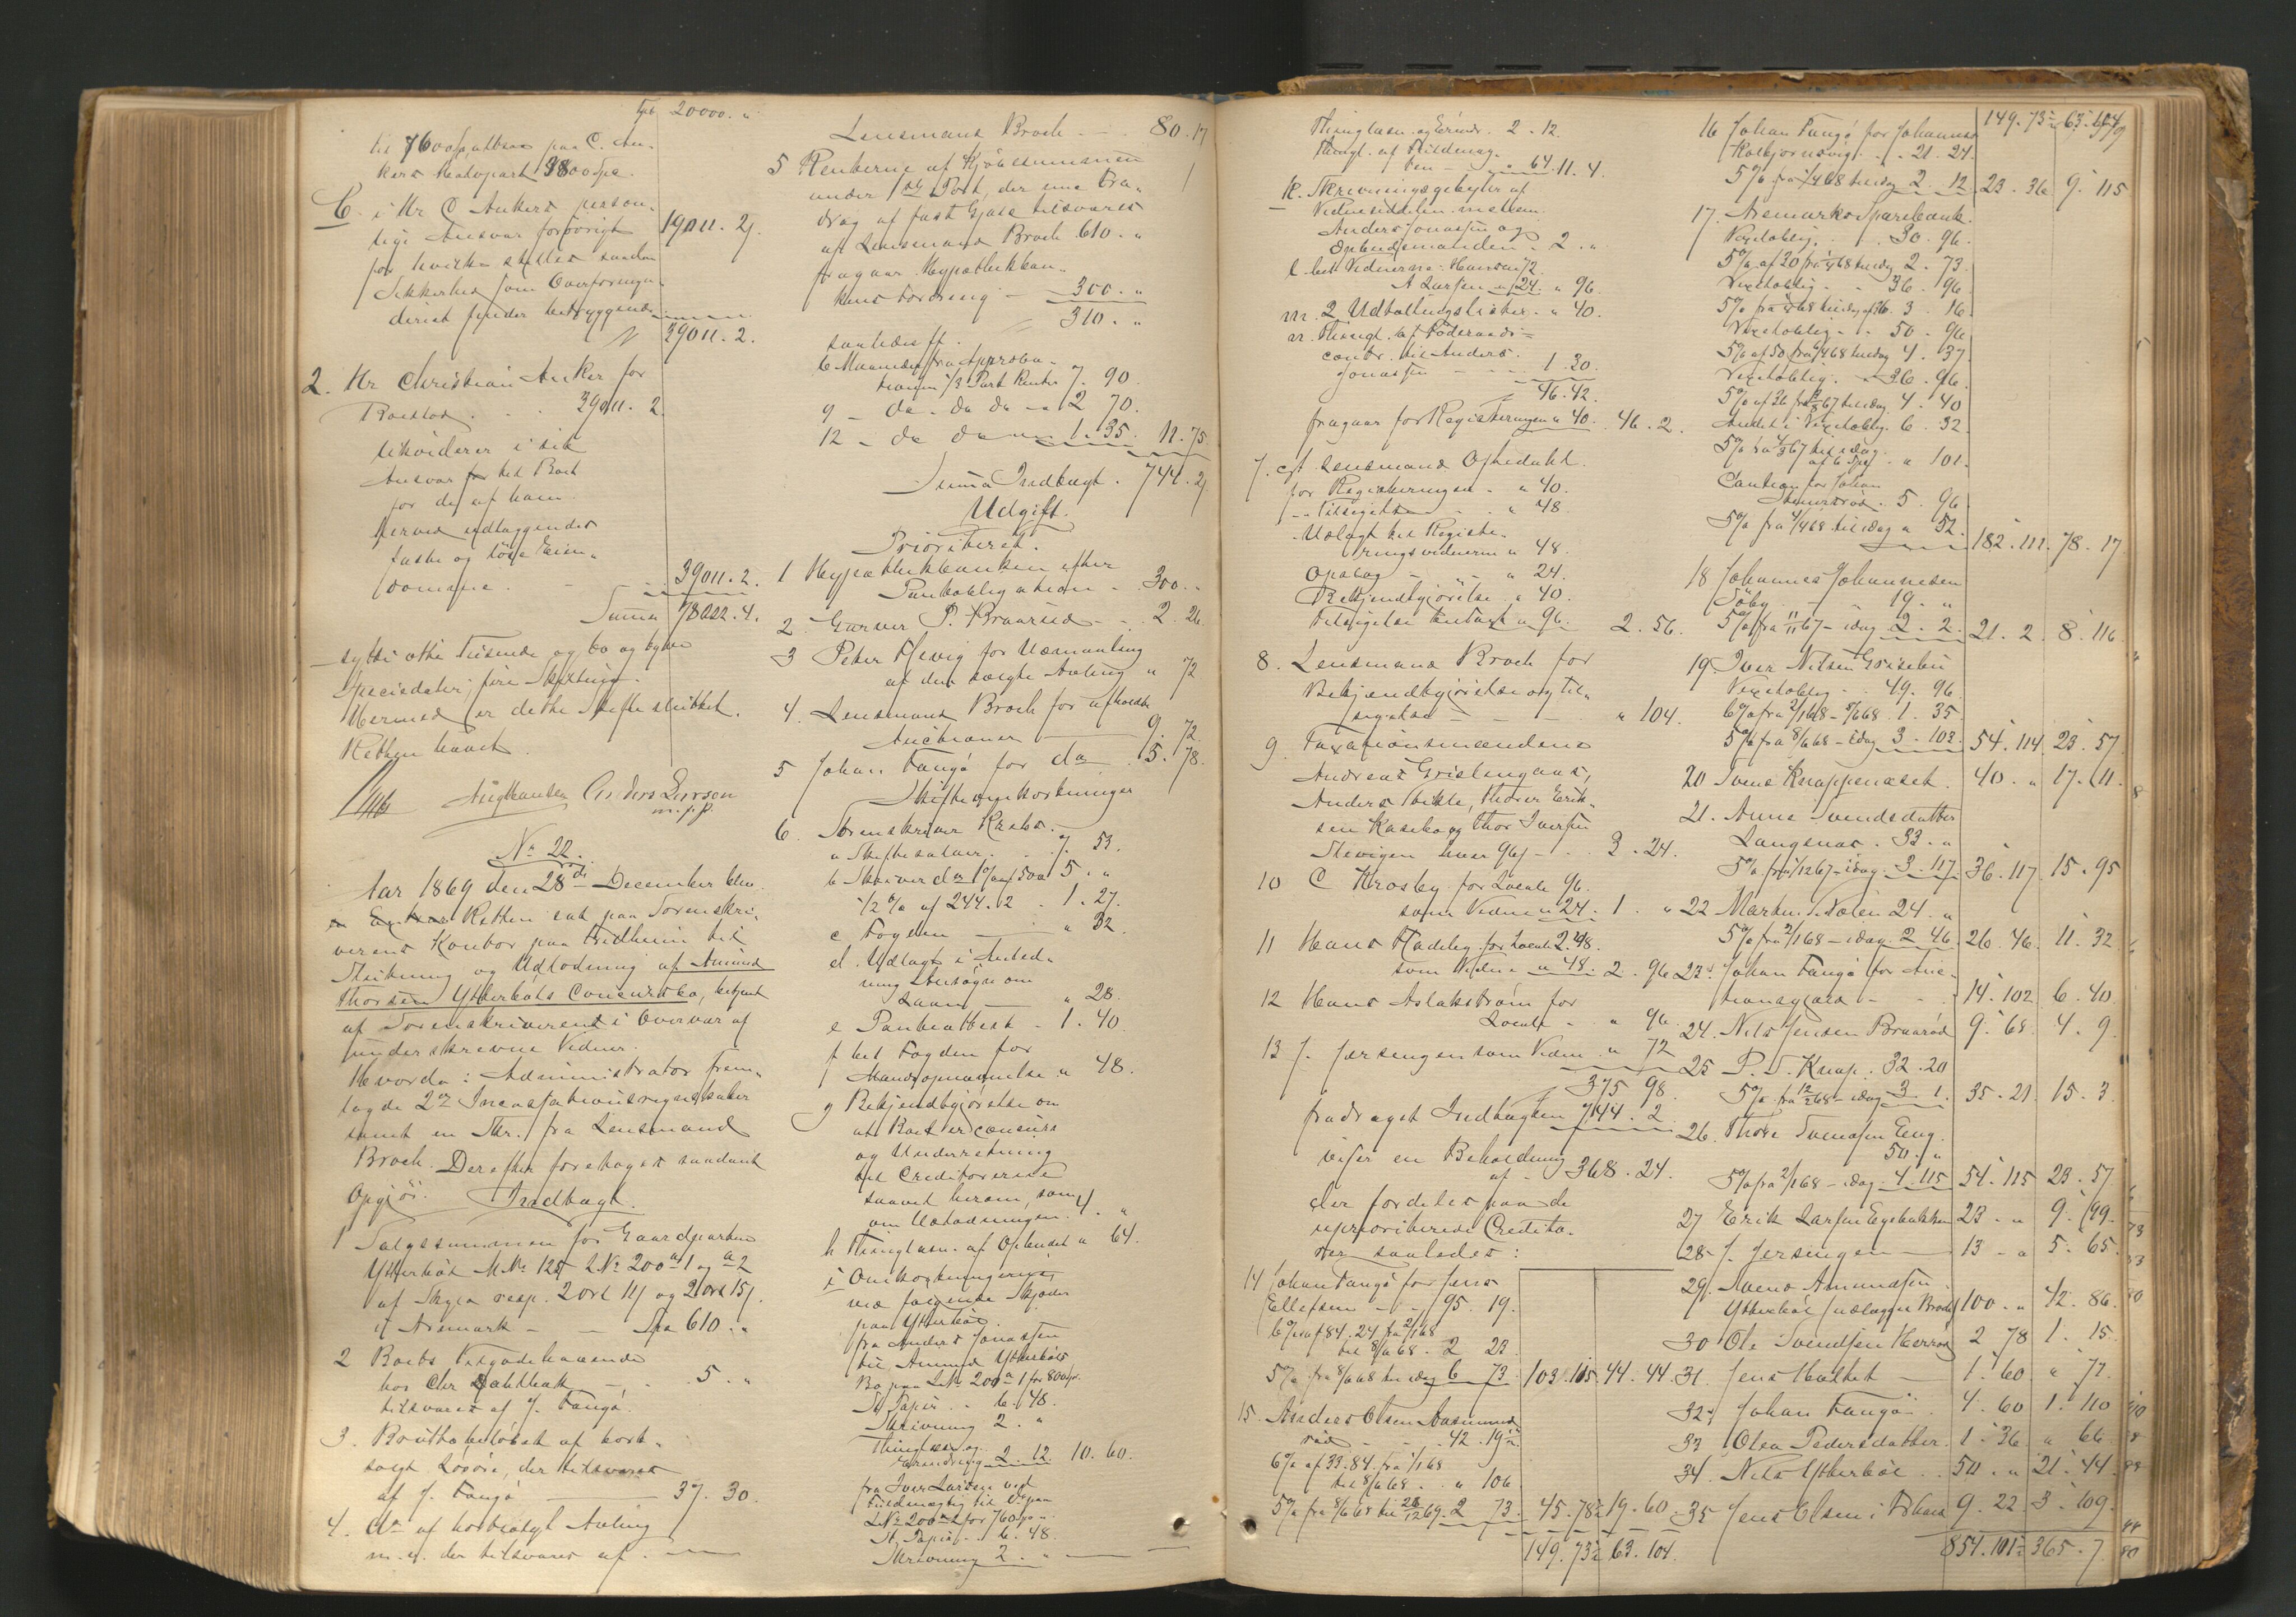 Tpt 20000. "
til 7600 Spd athses paa C. An-
kers Halvpart 3800 Spd.
C. i Hr C Ankers person-
lige Ansvar forøvrigt 19011. 2.
for hvilke stilles saadan
Sikkerhed som Overformyn-
deriet finder betryggende
39011. 2.
2. Hr Christian Anker for
Boeslod . . . 39011. 2
likviderer i sit
Ansvar for til Boet
for de af ham
herved udlæggendes
faste og løse Eien-
domme . - . 39011. 2.
Summa 78022. 4.
sytti otte Tusende og to og tyve
Speciedaler, fire Skilling.
Hermed er dette Skifte sluttet.
Retten hævet.
Aug Hansen Anders Larsen
m. f. P.
No 22.
Aar 1869 den 28de December blev
Retten sat paa Sorenskri-
verens Kontor paa Fredheim til
Slutning og Udlodning af Amund
Thorsen Ytterbøls Concursbo, betjent
af Sorenskriveren i Overvær af
underskrevne Vidner.
Hvorda: Administrator frem-
lagde 2de Incassationsregnskaber
samt en Skr. fra Lensmand
Broch. Derefter foretoges saadant
Opgjør. Indtægt.
1 Salgssummen for Gaardparten
Ytterbøl M.No 125 L.No 200a1 og a2
af Skyld resp. 2 ort 11 og 2 ort 15
i Aremark - - Spd 610. "
2 Boets Tilgodehavende
hos Chr Dahlbak - . 5. "
tilsvares af J. Tangø.
3. Bruttobeløbet af bort-
solgt Løsøre, der tilsvares
af J. Tangø - 37. 30.
4. do af bortsolgt Avling
m. v. der tilsvares af . -
Lensmand Broch - . 80. 17
5 Renterne af Kjøbesummen
under 1ste Post, der med Fra-
drag af fast Gjæld tilsvares
af Lensmand Broch 610. "
fragaar Hypothekban-
kens Fordring - 300. "
310. "
saaledes ff.
6 Maaneder fra Approba-
tionen 1/3 Part Renter 7. 90.
9 - do - do do - " 2 70.
12 - do do " " 1. 35. 11. 75.
Summa Indtægt . 744. 2.
Udgift.
Prioriteret.
1 Hypothekbanken efter
Pantobligation - . 300. "
2. Garver P. Braarud - . 2. 26.
3 Peter Hevig for Udmaaling
af den solgte Avling " 72
4. Lensmand Broch for afholdte
Auctioner - 9. 72.
5 Johan Tangø for do . 5. 78.
Skifteomkostninger
6. Sorenskriver Rasch.
a Skiftesalær . . 7. 53.
b Skriver do 1% af 500 5. "
1/2 % af 244. 2 . 1. 27.
c Fogden - " 32.
d. Udlagt i Anled-
ning Ansøgn om
Laan - " 28.
e Panteattest - 1. 40.
f. til Fogden for
Mandsopnævnelse " 48.
g Bekjendtgjørelse om
at Boet er Concurs
og Underretning
til Creditorerne
saavel herom, som
om Udlodningen. 4. "
h Thinglæsn. af Opbudet " 64.
i Omkostningerne
ved følgende Skjøder
paa Ytterbøl.
fra Anders Jonassen
til Amund Ytterbøls
Bo paa L.No 200a 1 for 800 Spd.
St. Papir . . 6. 48.
Skrivning 2. "
Thinglæsn og
Erindring 2. 12. 10. 60.
fra Iver Larsen ved
Fuldmægtig til do paa
L.No 200a2 for 760 Spd.
St. Papir . . 6. 48.
Skrivning 2. " -
Thinglæsn. og Erindr. 2. 12.
Thingl. af Fuldmag-
ten - " 64. 11. 4.
k. Skrivningsgebyhr af
Vidneseddelen mellem
Anders Jonassen og
Opbudsmanden . 2. "
l. til Vidnerne: Hansen 72.
A Larsen " 24. " 96.
m. 2 Udtællingslister. " 40.
n. Thingl. af Føderaads-
contr. til Anders
Jonassen - - - 1. 30.
46. 42.
fragaar for Registreringen " 40. 46. 2.
7. cst Lensmand Opsedahl
for Registreringen . " 40.
-" - Tilsigelse . . " 48.
Udlagt til Registe-
ringsvidnerne " 48.
Opslag - - " 24.
Bekjendtgjørelse " 40.
Tilsigelse " 96. 2. 56.
8. Lensmand Broch for
Bekjendtgjørelse og Til-
sigelse - - - " 104.
9 Taxationsmændene
Andreas Grislingaas,
Anders Bøkle, Thorer Erik-
sen Kasebo og Thor Iversen
Stevigen hver 96 - . 3. 24.
10 C Krosby for Locale 96.
som Vidne " 24. 1. "
11 Hans Fladeby for Locale 2. 48.
som Vidne " 48. 2. 96
12 Hans Aslakstrøm for
Locale - " 96.
13 J. Jørsengen som Vidne " 72
375 98.
fradraget Indtægten 744. 2
viser en Beholdning
af - 368. 24.
der fordeles paa de
uprioriterede Credito-
rer saaledes:
14 Johan Tangø for Jens
Ellefsen - - 95. 19.
6% af 84. 24 fra 2/1 68
til 8/6 68. 2 23.
5% fra 8/6 68 til idag 6 73. 103. 115 44. 44.
15. Anders Olsen Aasmund-
rød - - . 42. 19½.
6% af 33. 84. fra 1/1 68
til 8/6 68. . " 106
5% fra 8/6 68 til 28/12 69. 2 73. 45. 78½ 19. 60.
149. 73½ 63. 104.
149. 73½ 63. 104
16 Johan Tangø for Johannes
Kolbjørnsvig . . 21. 24.
5% fra 1/4 68 til idag 2. 12. 23. 36 9. 115
17. Aremarks Sparebank.
Vexeloblig. . . 30. 96.
5% af 30 fra 1/4 68 til idag 2. 73.
Vexeloblig - . 36. 96.
5% fra 1/4 68 til idag af 36. 3. 16.
Vexeloblig - . 50. 96.
5% af 50 fra 1/4 68 til idag 4. 37.
Vexeloblig. . 36. 96.
5% af 36 fra 2/8 67 til idag 4. 40
Andel i Vexeloblig. 6. 32.
5% fra 4/3 67 til idag
af 6 Spd . " 101.
Caution for Johan
5. 96
5% fra 4/4 68 til idag " 52. 182. 111. 78. 17.
18 Johannes Johannesen
Søby . - 19. "
5% fra 11/11 67 - idag 2. 2. 21. 2 8. 116
19. Iver Nilsen Grisebu
Vexeloblig . . 49. 96.
6% fra 2/1 68 - 8/6 68 1. 35.
5% fra 8/6 68 - idag 3. 103. 54. 114. 23. 57
20 Svend Knappenæset. 40. " 17. 11.
21. Anne Svendsdatter
Langenæs . 33. "
5% fra 1/12 67 - idag. 3. 117. 36. 117. 15. 95
22 Martin S. Nolen 24. "
5% fra 2/1 68 - idag. 2 46. 26. 46. 11. 32
23. Johan Tangø for Auc-
tionsgjæld - . 14. 102 6. 40.
24. Nils Jensen Braarød 9. 68 4. 9
25 P. T. Knap. 32. 20
5% fra 12/2 68 - idag 3 1. 35. 21. 15. 3.
26. Thore Svendsen Eeng.
50. "
5% fra 2/1 68 - idag. 4. 115 54. 115 23. 57
27 Erik Larsen Egebakken 23. " 9. 99.
28 J. Jørsengen - 13 - " 5. 65.
29. Svend Amundsen
Ytterbøl / udlægges Broch / 100. " 42. 86.
30 Ole Svendsen Herrød 2 78 1. 15.
31. Jens Holtet - 1. 60. " 77.
32. Johan Tangø . 4. 60 1. 110
33 Olea Pedersdatter. 1. 36 " 66
34. Nils Ytterbøl . . 50. " 21. 44.
35 Jens Olsen i 9. 22 3. 109.
854. 101½ 365. 7.